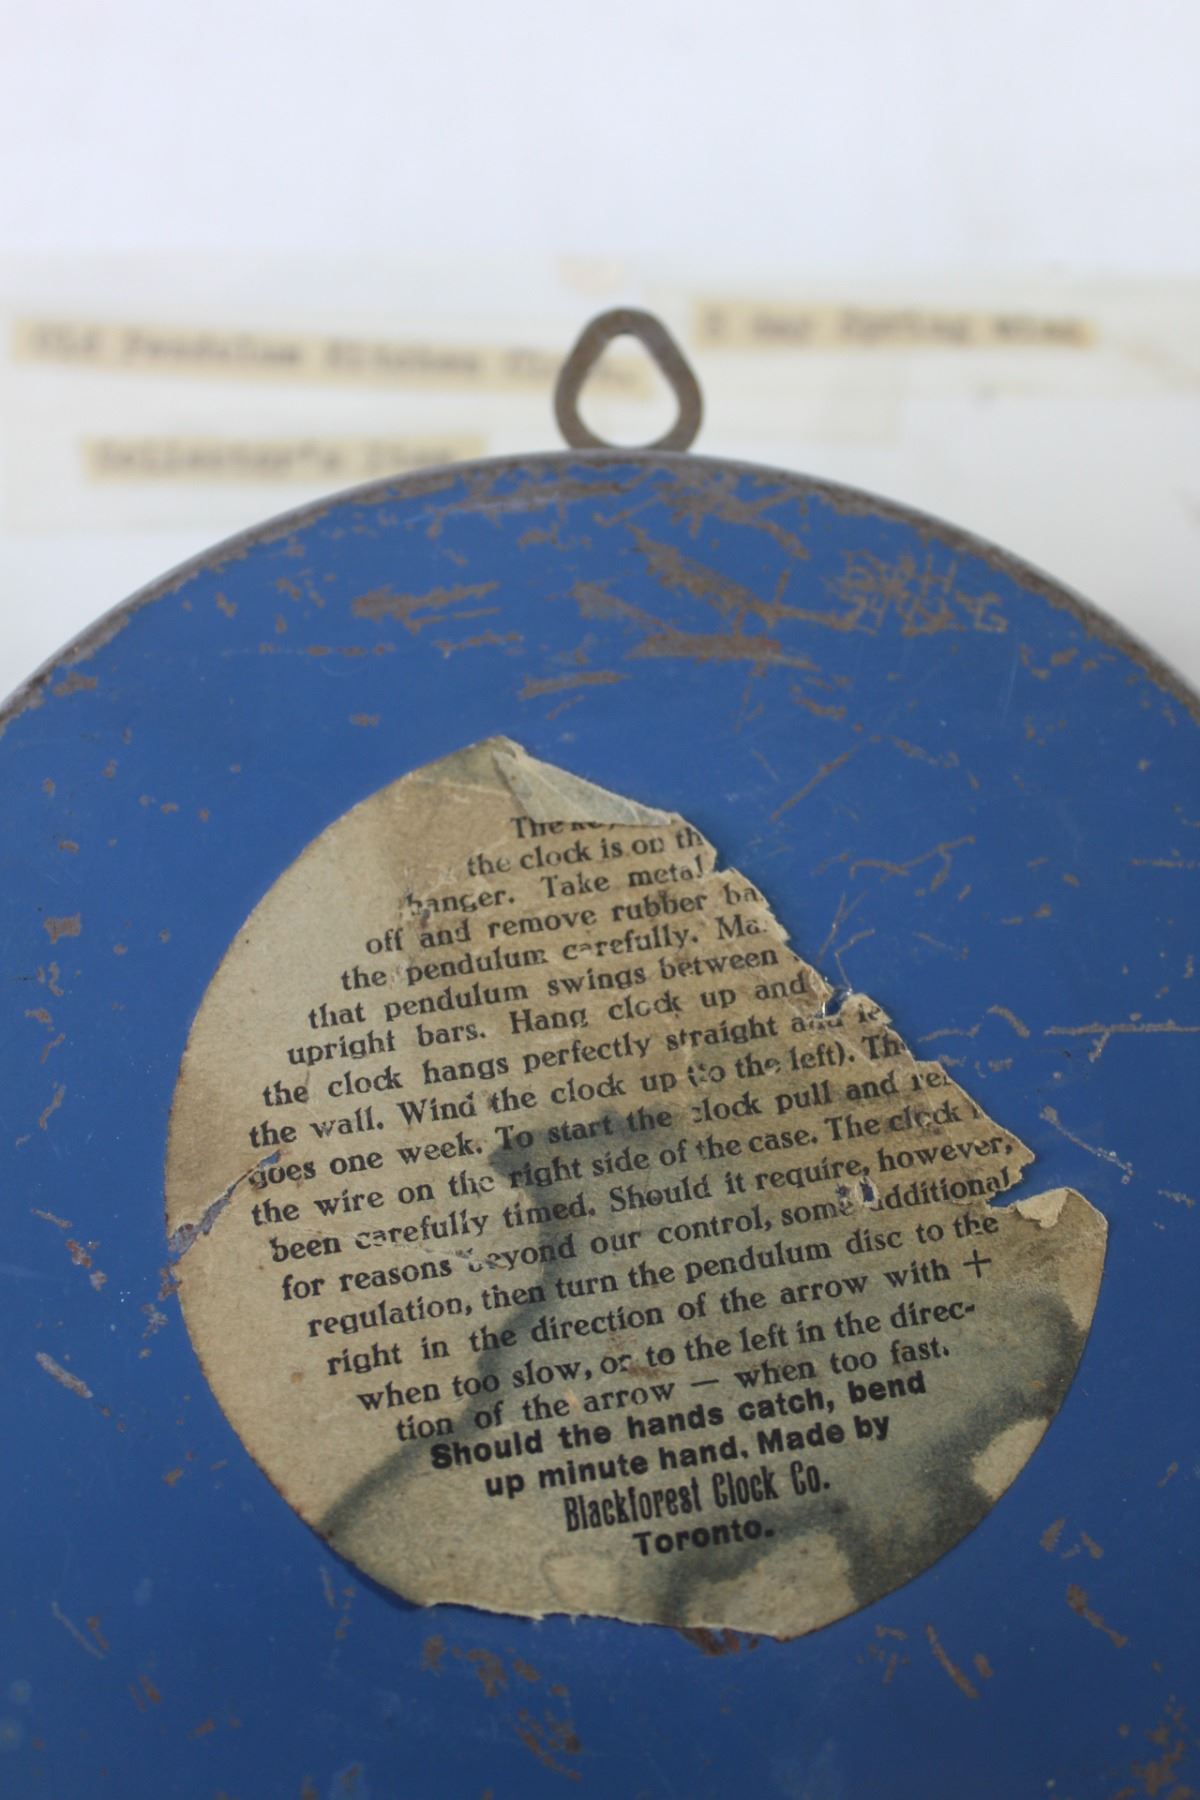 Old Pendulum Kitchen
Collector's Item
8 Day Spring Wind
The
the clock is on th
hanger. Take metal
off and remove rubber ba
the pendulum carefully. Ma
that pendulum swings between
upright bars. Hang clock up and
the clock hangs perfectly straight and le
the wall. Wind the clock up (to the left). Th
goes one week. To start the clock pull and rel
the wire on the right side of the case. The clock
been carefully timed. Should it require, however,
for reasons beyond our control, some additional
regulation, then turn the pendulum disc to the
right in the direction of the arrow with +
when too slow, or to the left in the direc-
tion of the arrow — when too fast.
Should the hands catch, bend
up minute hand. Made by
Blackforest Clock Co.
Toronto.